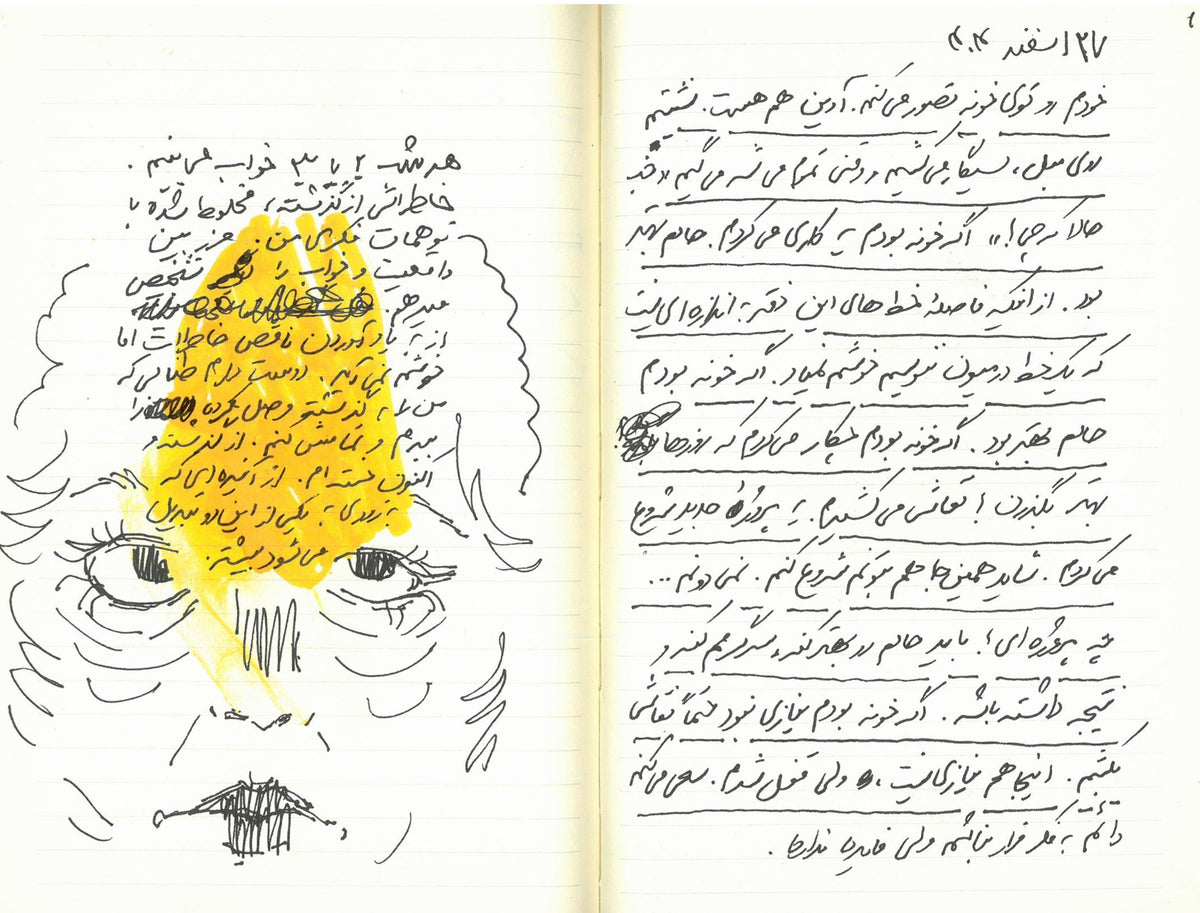 ۲۷ اسفند ۴۰۴
خودم رو توی خونه تصور می‌کنم. آردین هم هست. نشستیم
روی مبل، سیگار می‌کشیم وقتی تموم می‌شه می‌گیم «خب
حالا که چی!» اگه خونه بودم یه کاری می‌کردم. حالم بهتر
بود. از اینکه فاصلهٔ خط‌های این دفتر به اندازه‌ای نیست
که یک خط درمیون بنویسم خوشم نمیاد. اگه خونه بودم
حالم بهتر بود. اگه خونه بودم چیکار می‌کردم که روزها
بهتر بگذرن؟ نقاشی می‌کشیدم. یه پروژهٔ جدید شروع
می‌کردم. شاید همین جا هم بتونم شروع کنم. نمی‌دونم...
چه پروژه‌ای؟ باید حالم رو بهتر کنه، سرگرمم کنه و
نتیجه داشته باشه. اگه خونه بودم نیازی نبود حتماً نقاشی
بکشم. اینجا هم نیازی نیست، ولی قفل شدم. سعی می‌کنم
دائم به فکر فرار نباشم ولی فایده نداره.
هر شب ۲ یا ۳ خواب می‌بینم.
خاطراتی از گذشته، مخلوط شده با
توهمات فکری من. مرز بین
واقعیت و خواب را تشخیص
میدهم.
از به یاد آوردن ناقص خاطرات اما
خوشم نمی‌آید. دوست دارم طنابی که
من را به گذشته وصل کرده را
ببرم و تماشایش کنم. از گذشته و
اکنون خسته‌ام. از آینده‌ای که
به زودی به یکی از این دو تبدیل
می‌شود بیشتر.